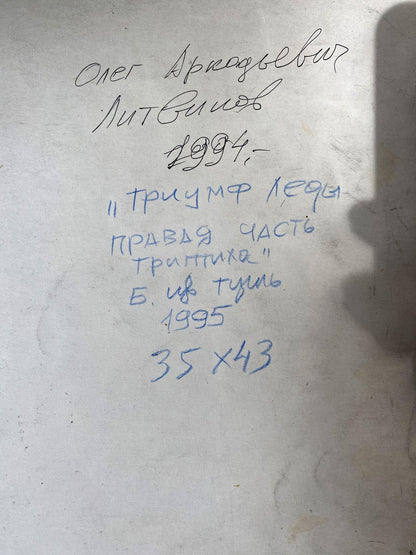 Олег Аркадьевич
Литвинов
1994,-
"Триумф Леды
правая часть
триптиха"
Б. цв тушь
1995
35х43